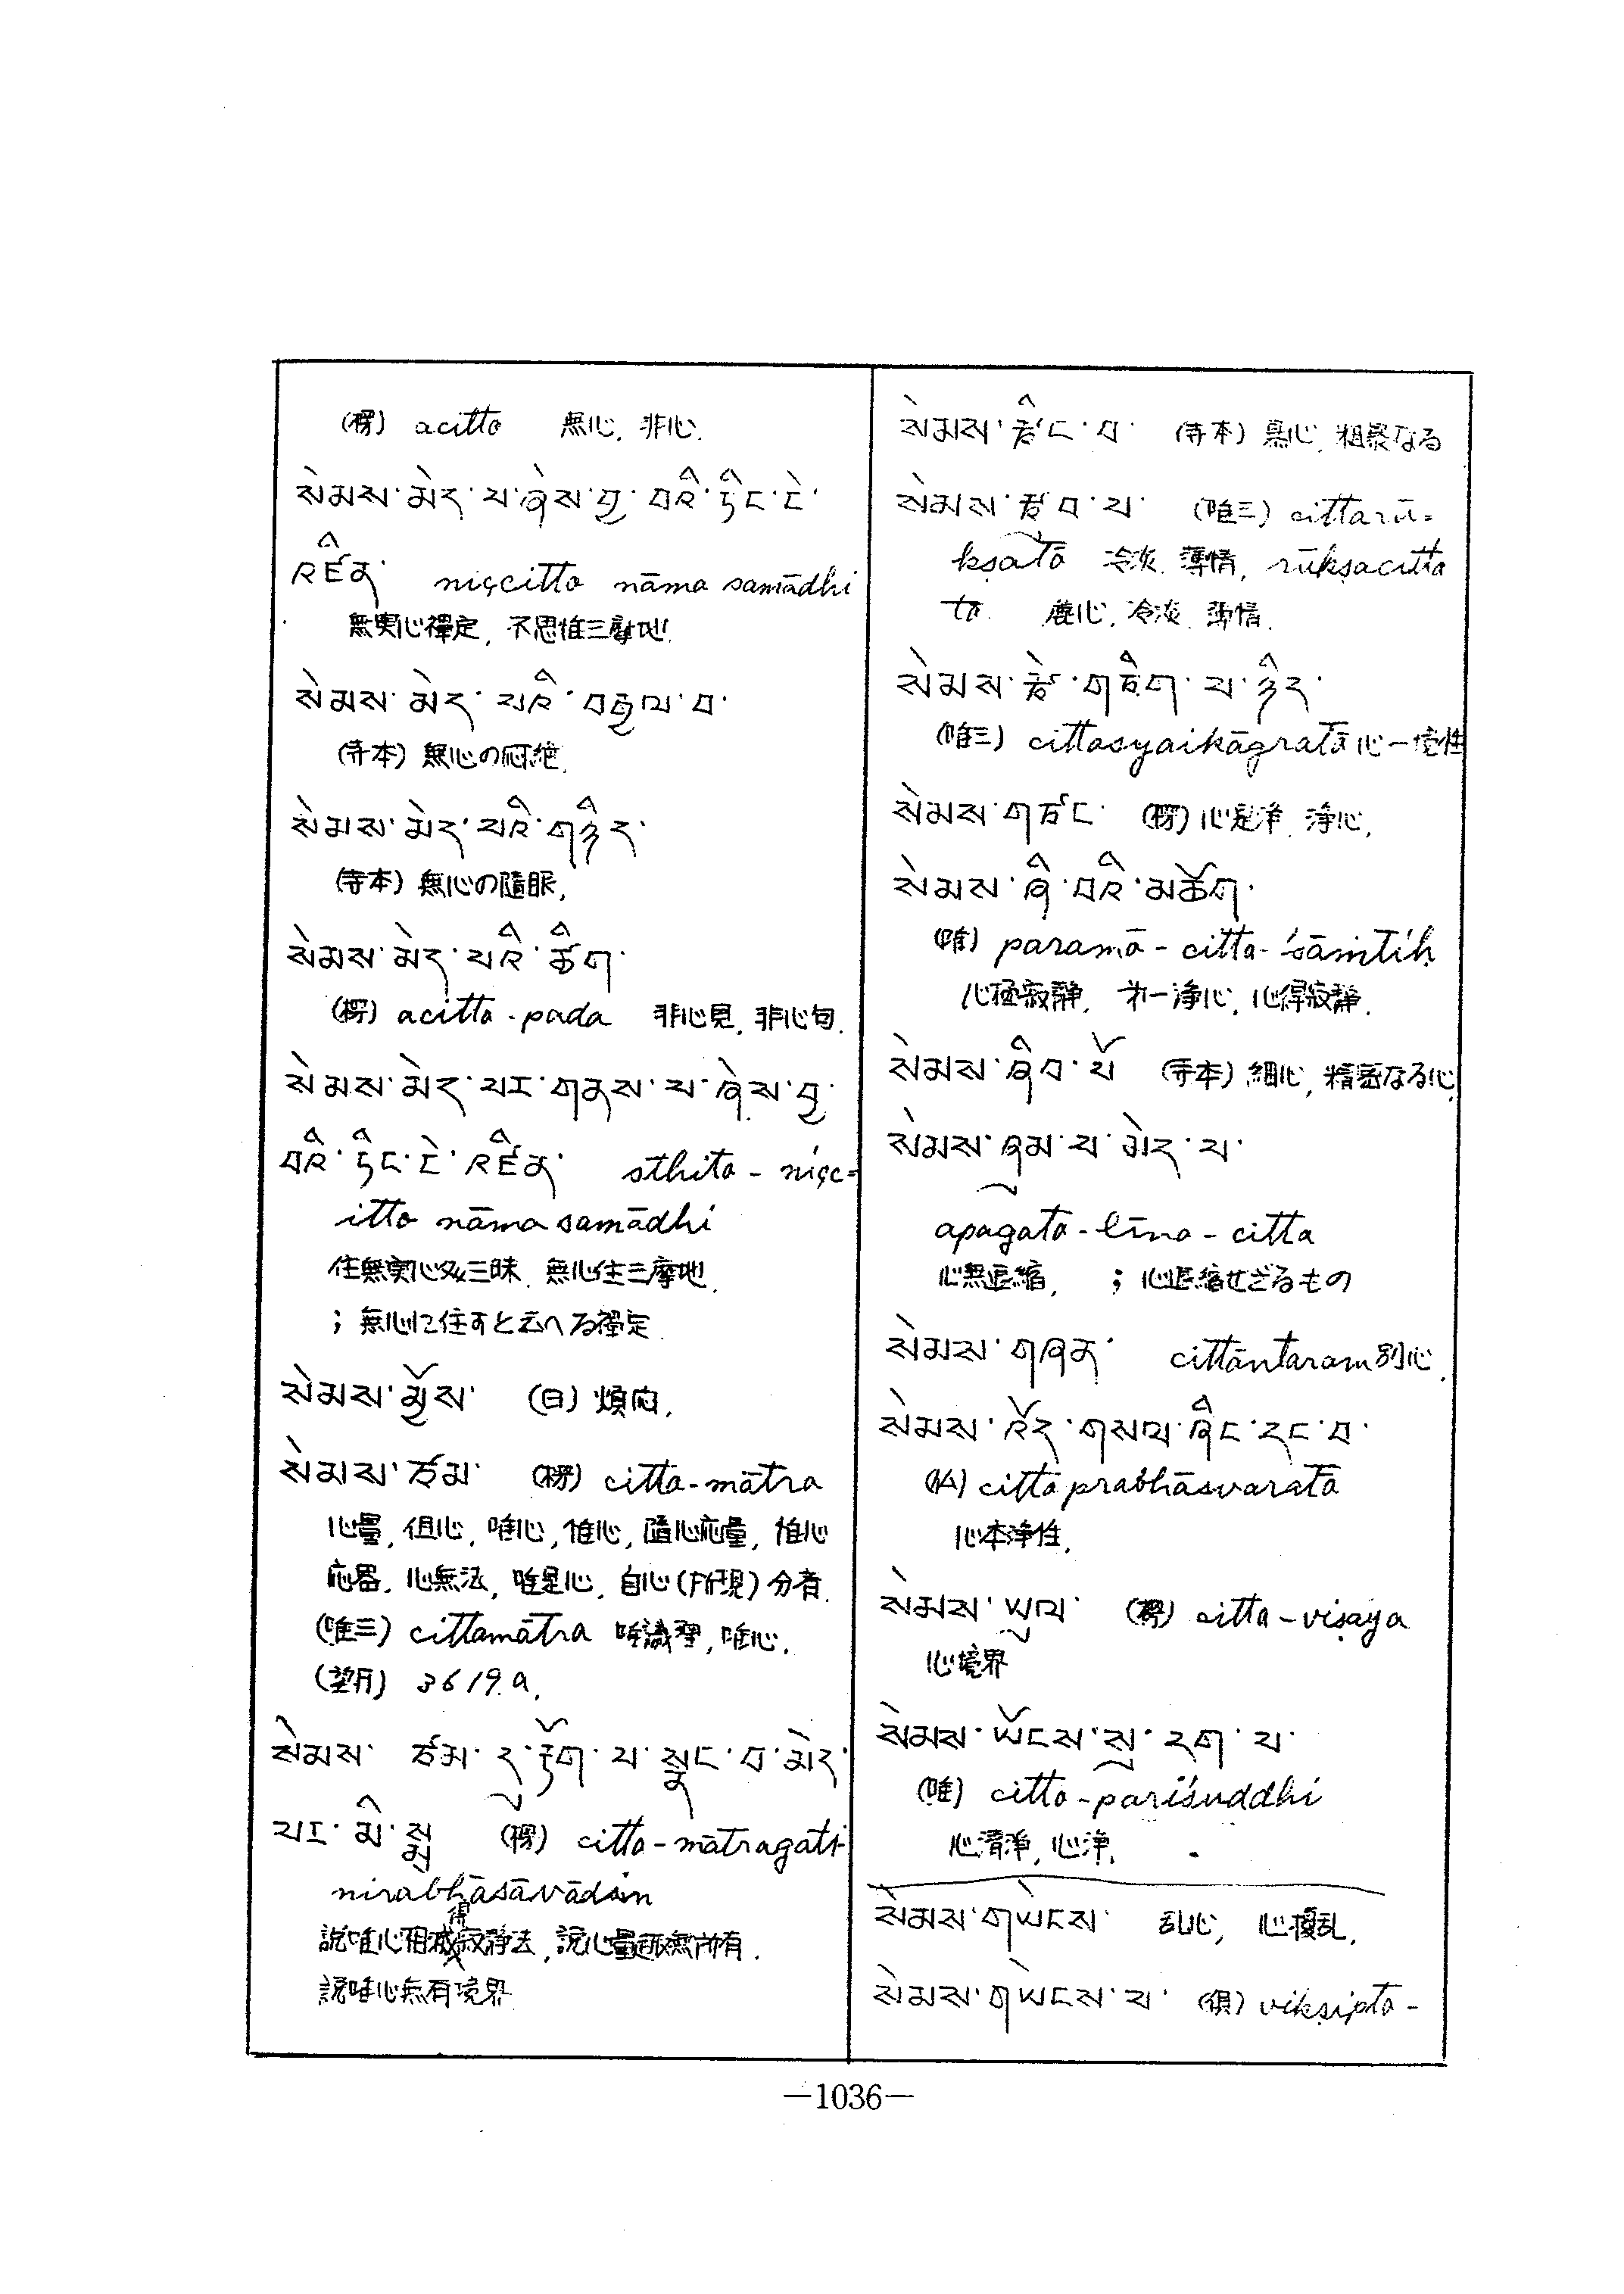 (楞) acitta 無心, 非心.
སེམས་མེད་པ་ཞེས་བྱ་བའི་ཏིང་ངེ་
འཛིན་ niṣcitto nāma samādhi
無実心禪定, 不思惟三摩地.
སེམས་མེད་པའི་བརྒྱལ་བ་
(寺本) 無心の悶絶.
སེམས་མེད་པའི་གཉིད་
(寺本) 無心の隨眠,
སེམས་མེད་པའི་ཚིག་
(楞) acitta-pada 非心見, 非心句.
སེམས་མེད་པར་གནས་པ་ཞེས་བྱ་
བའི་ཏིང་ངེ་འཛིན་ sthita-niṣc=
itto nāma samādhi
住無実心 三昧, 無心住三摩地.
; 無心に住すと云へる禪定.
སེམས་མྱོས་ (日) 煩悶,
སེམས་ཙམ་ (楞) citta-mātra
心量, 但心, 唯心, 惟心, 隨心応量, 惟心
応器, 心無法, 唯是心, 自心(所現)分者.
(唯三) cittamātra 唯識理, 唯心.
(望月) 3619.a.
སེམས་ ཙམ་དུ་རྟོག་པ་སྣང་བ་མེད་
པར་མི་སྨྲ (楞) citta-mātragati
nirabhāsāvādin
説唯心相得寂静法, 説心量趣無所有.
説唯心無有境界
སེམས་རྩིང་བ་ (寺本) 麁心, 粗暴なる
སེམས་རྩུབ་པ་ (唯三) cittarū=
kṣatā 冷淡, 薄情, rūkṣacitta
tā. 麁心, 冷淡, 薄情.
སེམས་རྩེ་གཅིག་པ་ཉིད་
(唯三) cittasyaikāgratā 心一境性
སེམས་གཙང་ (楞) 心是浄, 浄心,
སེམས་ཞི་བའི་མཆོག་
(唯) paramā-citta-śāṁtiḥ
心極寂静, 第一浄心, 心得寂静.
སེམས་ཞིབ་པོ (寺本) 細心, 精密なる心,
སེམས་ཞུམ་པ་མེད་པ་
apagata-līna-citta
心無退縮, ; 心退縮せざるもの
སེམས་གཞན་ cittāntaram 別心.
སེམས་འོད་གསལ་ཞིང་དང་བ་
citta prabhāsvaratā
心本浄性,
སེམས་ཡུལ་ (楞) citta-viṣaya
心境界
སེམས་ཡོངས་སུ་དག་པ་
(唯) citta-pariśuddhi
心清浄, 心浄,
སེམས་གཡེངས་ 乱心, 心擾乱,
སེམས་གཡེངས་པ་ (倶) vikṣipta-
—1036—